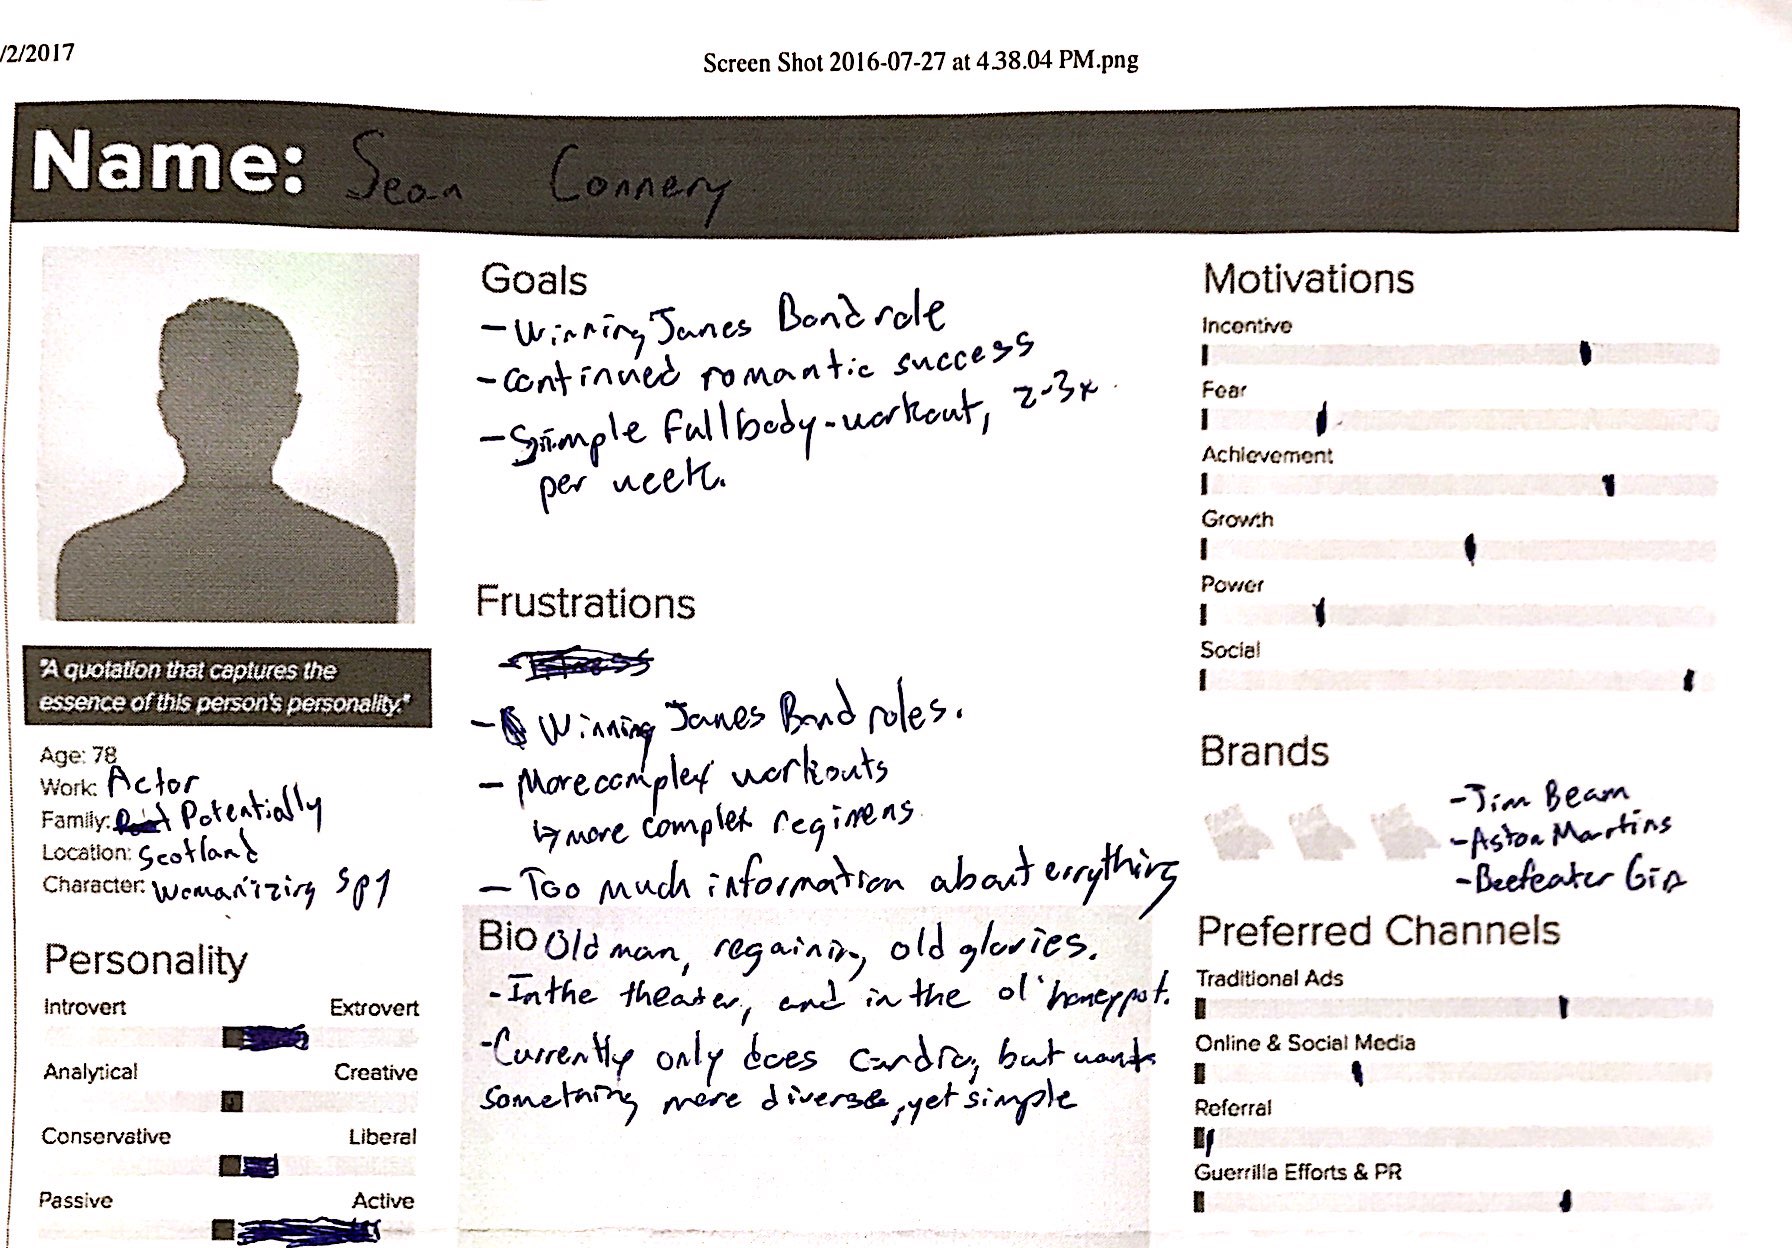 /2/2017
Screen Shot 2016-07-27 at 4.38.04 PM.png
Name: Sean Connery
"A quotation that captures the
essence of this person's personality."
Age: 78
Work: Actor
Family: Potentially
Location: Scotland
Character: Womanizing Spy
Personality
Introvert Extrovert
Analytical Creative
Conservative Liberal
Passive Active
Goals
- Winning James Bond role
- continued romantic success
- Simple full body-workout, 2-3x
per week.
Frustrations
- Winning James Bond roles.
- More complex workouts
↳ more complex regimens
- Too much information about errything
Bio Old man, regaining old glories.
- In the theater, and in the ol' honeypot.
- Currently only does cardio, but wants
something more diverse, yet simple
Motivations
Incentive
Fear
Achievement
Growth
Power
Social
Brands
- Jim Beam
- Aston Martins
- Beefeater Gin
Preferred Channels
Traditional Ads
Online & Social Media
Referral
Guerrilla Efforts & PR